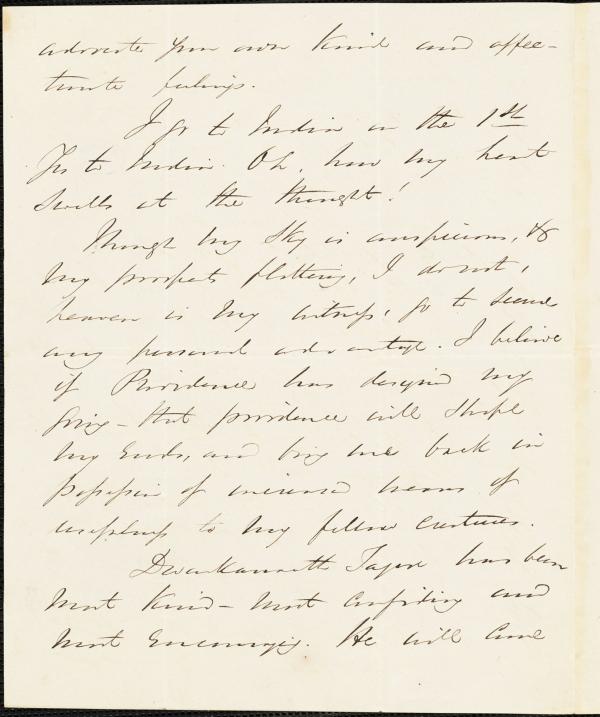 advocate your own kind and affec-
tionate feelings.
I go to India on the 1st
Yes to India. Oh, how my heart
swells at the thought!
Though my sky is auspicious, &
my prospects flattering, I do not,
heaven is my witness, go to secure
any personal advantage. I believe
if Providence has designed my
going - that providence will shape
my ends, and bring me back in
possession of increased means of
usefulness to my fellow creatures.
Dwarkanath Tagore has been
most kind - most confiding and
most encouraging. He will come